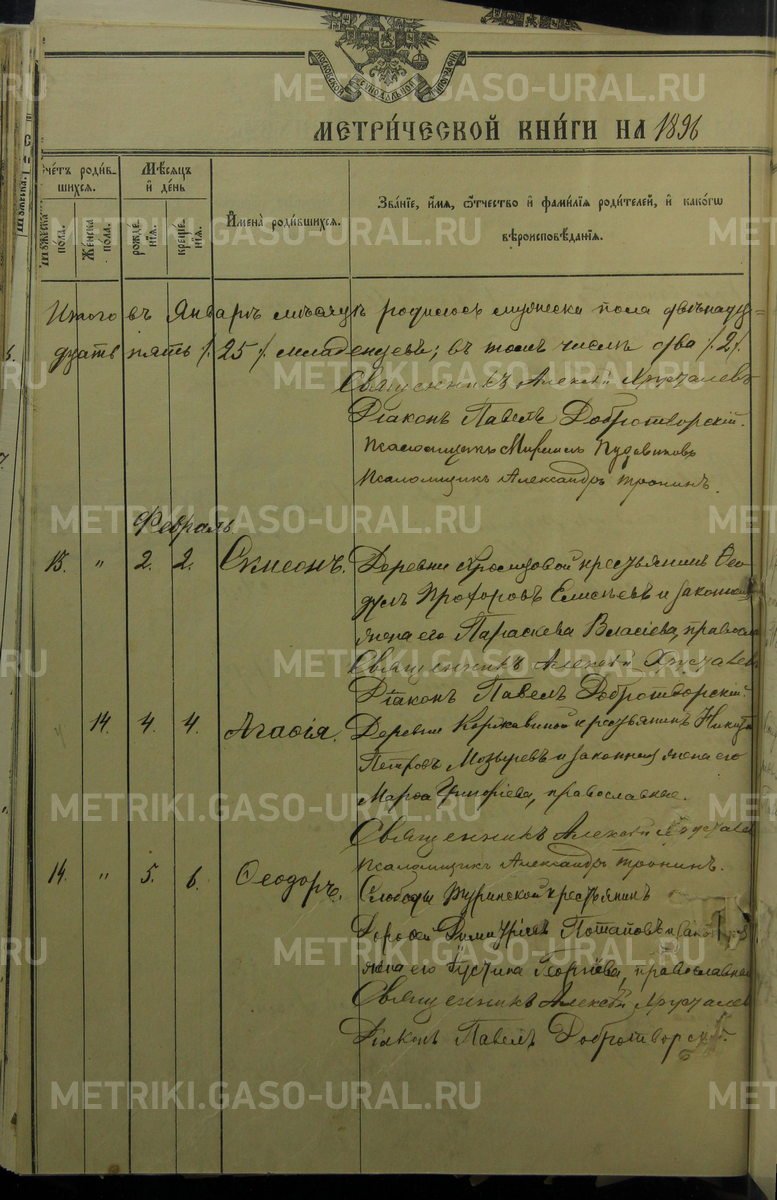 МЕТРИ́ЧЕСКОЙ КНИ́ГИ НА 1896
Сче́тъ роди́вшихся.
Мѣ́сяцъ и́ де́нь
И҆мена̀ роди́вшихся.
Зва́нїе, и҆́мя, ѻ҆́тчество и҆ фами́лїя роди́телей, и҆ како́гѡ вѣроисповѣ́данїя.
Му́жеска по́ла.
Же́нска по́ла.
рожде́нїя.
креще́нїя.
Итого въ Январѣ мѣсяцѣ родилось мужеска пола
дцать пять /25/ младенцевъ; въ томъ числѣ два /2/.
Священникъ Алексѣй Хрусталевъ
Дiаконъ Павелъ Добротворскiй.
Псаломщикъ
Псаломщикъ Александръ Тронинъ.
Февраль
" 2. 2. Симеонъ. Деревни крестьянинъ Ѳео
дулъ Прохоровъ Елисѣевъ и законная
жена его Параскева Власiева, правосла
Священникъ Алексѣй Хрусталевъ
Дiаконъ Павелъ Добротворскiй.
14. 4. 4. Агафiя. Деревни Коржавиной крестьянинъ Никита
Петровъ Мозыревъ и законная жена его
Марфа Григорiева, православные.
Священникъ Алексѣй Хрусталев
Псаломщикъ Александръ Тронинъ.
14. " 5. 6. Ѳеодоръ. Слободы Туринской крестьянинъ
Дорофей Димитрiевъ Потаповъ и зако
жена его Iустина Георгiева, православные
Священникъ Алексѣй Хрусталев
Дiаконъ Павелъ Добротворскiй.
METRIKI.GASO-URAL.RU